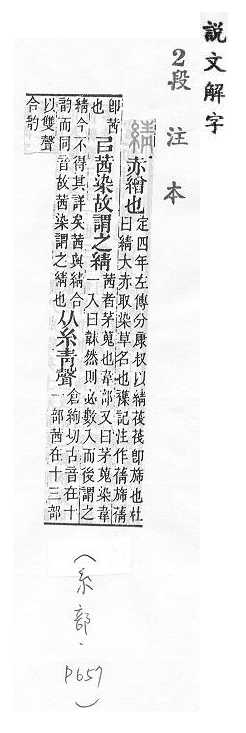 說文解字
2段注本
綪 赤繒也 定四年左傳分康叔以綪茷茷即旆也杜
曰綪大赤取染草名也襍記注作蒨旆蒨
即茜
也 㠯茜染故謂之綪 茜者茅蒐也韋部又曰茅蒐染韋
一入曰韎然則必數入而後謂之
綪今不得其詳矣茜與綪合
韵而同音故茜染謂之綪也 从糸青聲 倉絢切古音在十
一部茜在十三部
以雙聲
合韵
(糸部.P657)